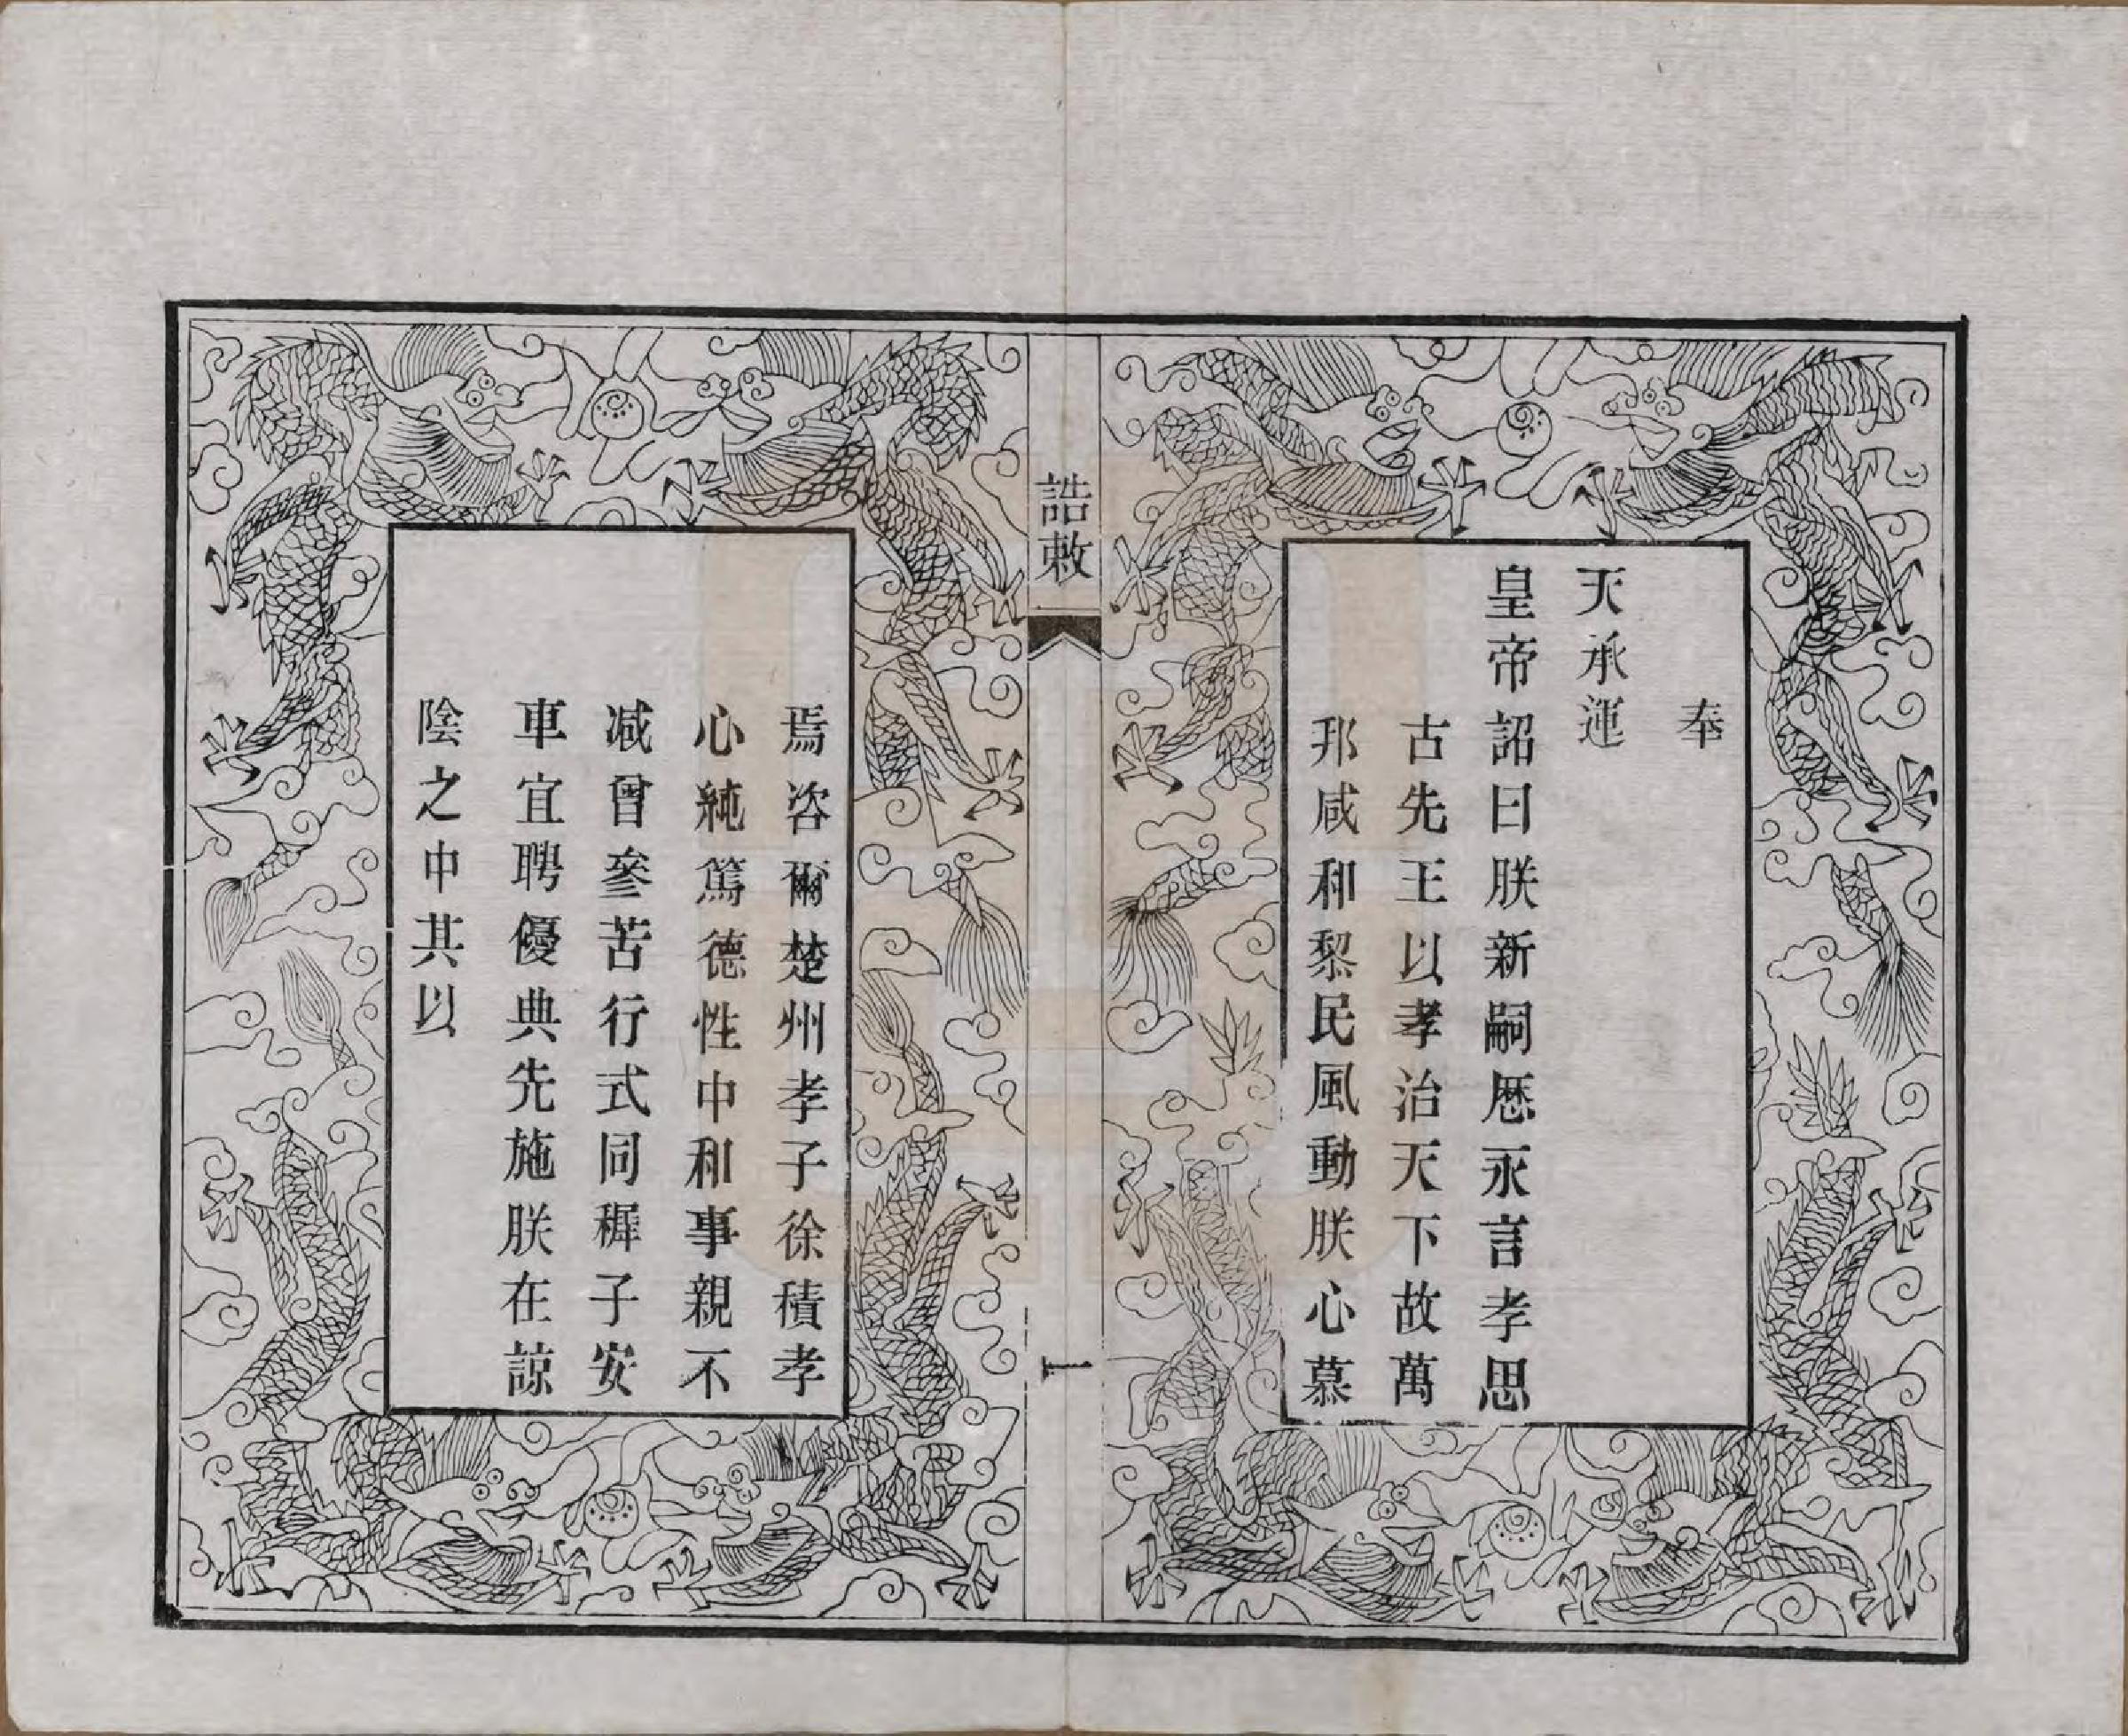 奉
天承運
皇帝詔曰朕新嗣厯永言孝思
古先王以孝治天下故萬
邦咸和黎民風動朕心慕
誥敕
一
焉咨爾楚州孝子徐積孝
心純篤德性中和事親不
減曾參苦行式同穉子安
車宜聘優典先施朕在諒
陰之中其以